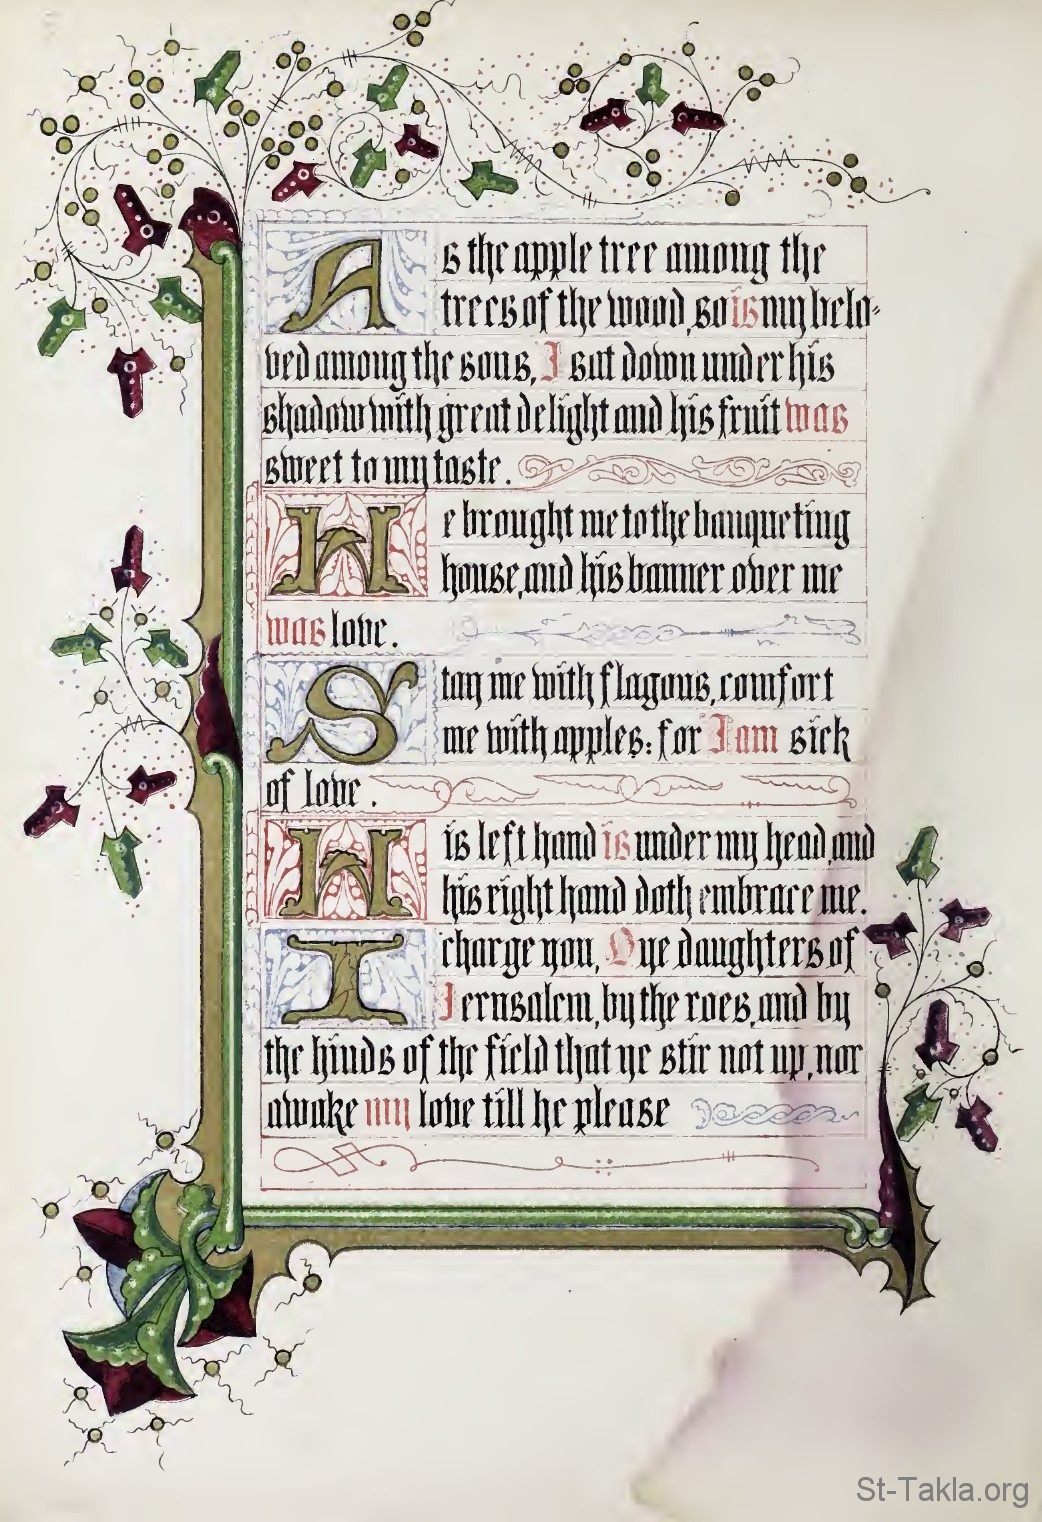 As the apple tree among the
trees of the wood, so is my belo-
ved among the sons, I sat down under his
shadow with great delight and his fruit was
sweet to my taste.
He brought me to the banqueting
house, and his banner over me
was love.
Stay me with flagons, comfort
me with apples: for I am sick
of love.
His left hand is under my head, and
his right hand doth embrace me.
I charge you, O ye daughters of
Jerusalem, by the roes, and by
the hinds of the field that ye stir not up, nor
awake my love till he please
St-Takla.org